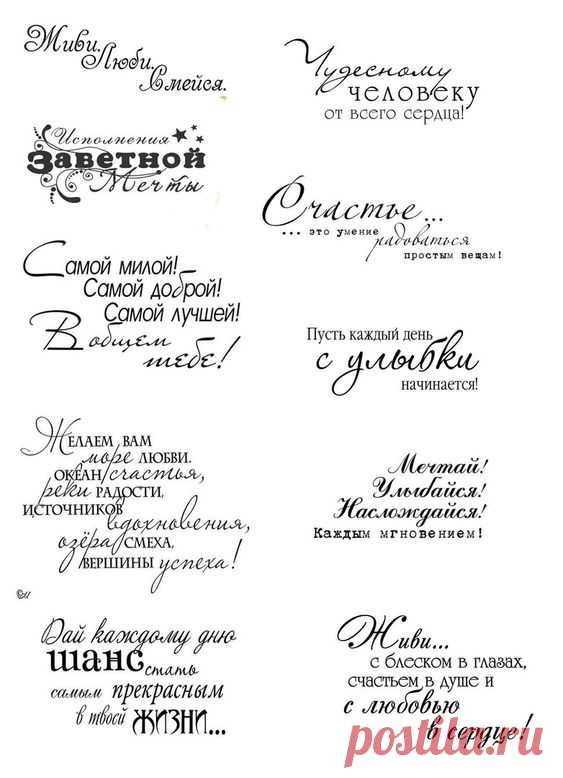 Живи.
Люби.
Смейся.
Исполнения
Заветной
Мечты
Самой милой!
Самой доброй!
Самой лучшей!
В общем
тебе!
Желаем вам
море любви.
океан счастья,
реки радости,
источников
вдохновения,
озёра смеха,
вершины успеха!
Дай каждому дню
шанс стать
самым прекрасным
в твоей жизни...
Чудесному
человеку
от всего сердца!
Счастье...
... это умение
радоваться
простым вещам!
Пусть каждый день
с улыбки
начинается!
Мечтай!
Улыбайся!
Наслождайся!
Каждым мгновением!
Живи...
с блеском в глазах,
счастьем в душе и
с любовью
в сердце!
postila.ru